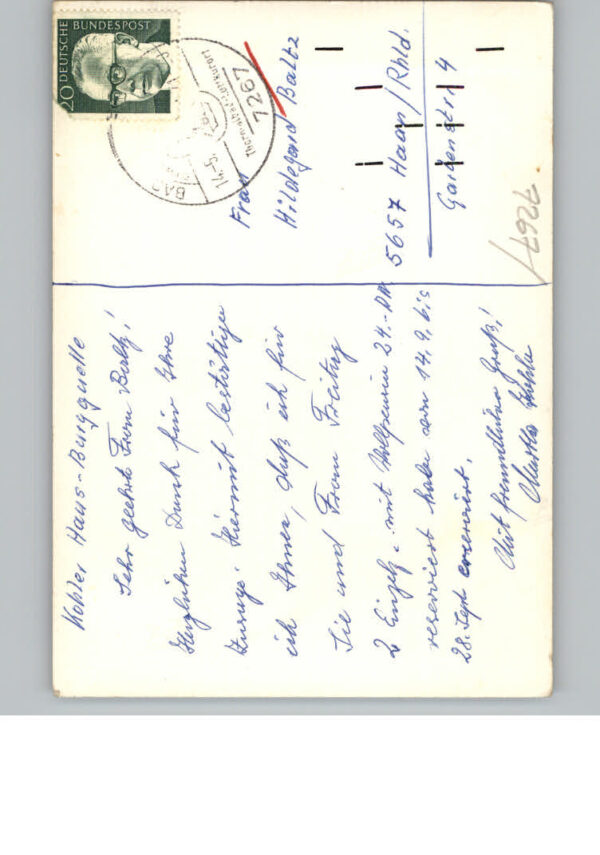 Kohler Haus-Burgquelle
Sehr geehrte Frau Baltz!
Herzlichen Dank für Ihre
Zusage. Hiermit bestätige
ich Ihnen, daß ich für
Sie und Frau Freitag
2 Einzelz. mit Vollpension 24.- DM
reserviert habe vom 14.9. bis
28. Sept. reserviert.
Mit freundlichen Gruß!
DEUTSCHE
BUNDESPOST
20
14.-5.
BAD
7267
Frau
Hildegard Baltz
5657 Haan/Rhld.
Gartenstr. 4
7267